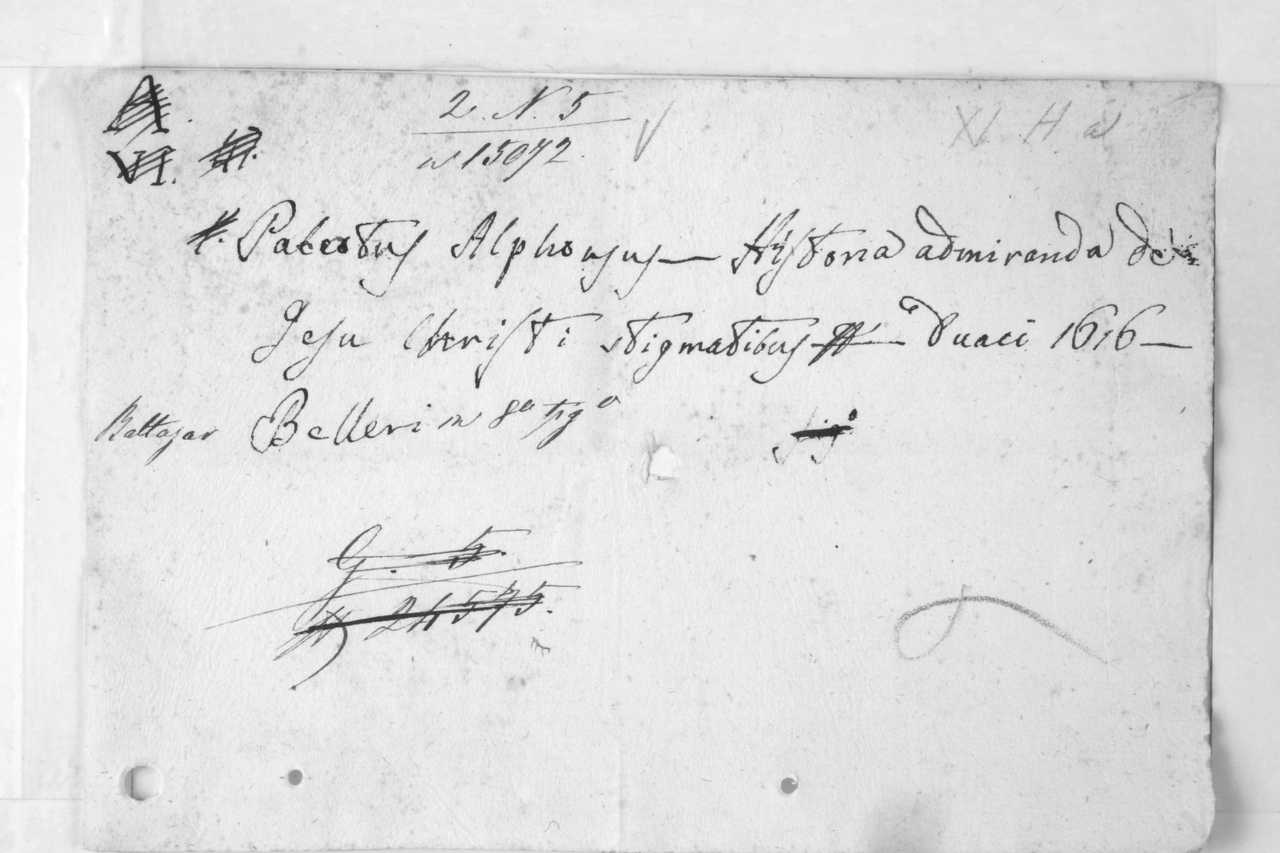 A.
VI.
2. N. 5
w 15072.
XI. H a
Paleotus Alphonsus — Historia admiranda de
Jesu Christi stigmatibus — Duaci 1616 —
Baltazar Belleri in 8º fig º
figº
G. 5.
24575.